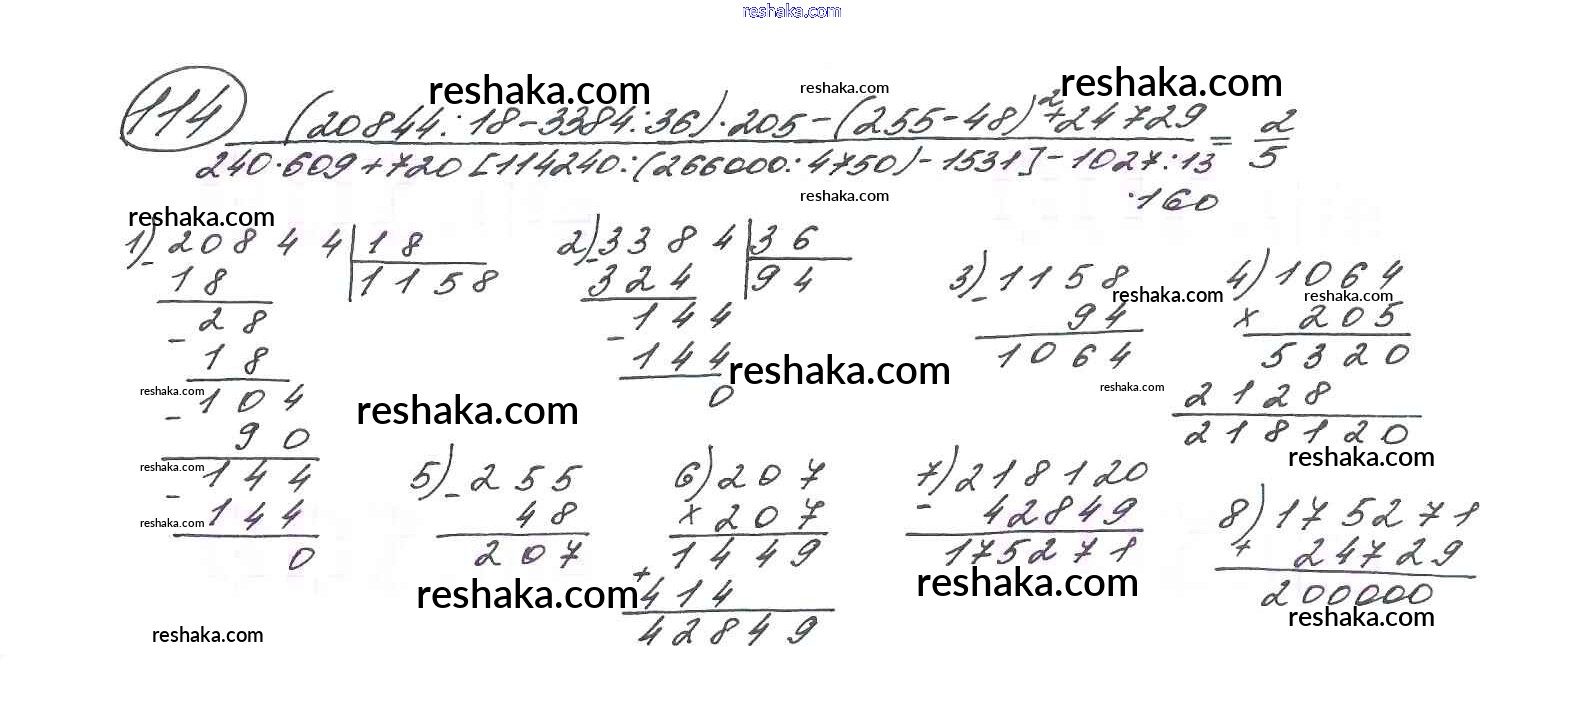 reshaka.com
114
(20844:18-3384:36)·205-(255-48)²+24729
240·609+720[114240:(266000:4750)-1531]-1027:13
·160
= 2/5
reshaka.com
reshaka.com
reshaka.com
reshaka.com
reshaka.com
1) 20844 | 18
- 18 | 1158
28
- 18
104
- 90
144
- 144
0
2) 3384 | 36
- 324 | 94
144
- 144
0
3) 1158
- 94
1064
4) 1064
× 205
5320
2128
218120
5) 255
- 48
207
6) 207
× 207
1449
+ 414
42849
7) 218120
- 42849
175271
8) 175271
+ 24729
200000
reshaka.com
reshaka.com
reshaka.com
reshaka.com
reshaka.com
reshaka.com
reshaka.com
reshaka.com
reshaka.com
reshaka.com
reshaka.com
reshaka.com
reshaka.com